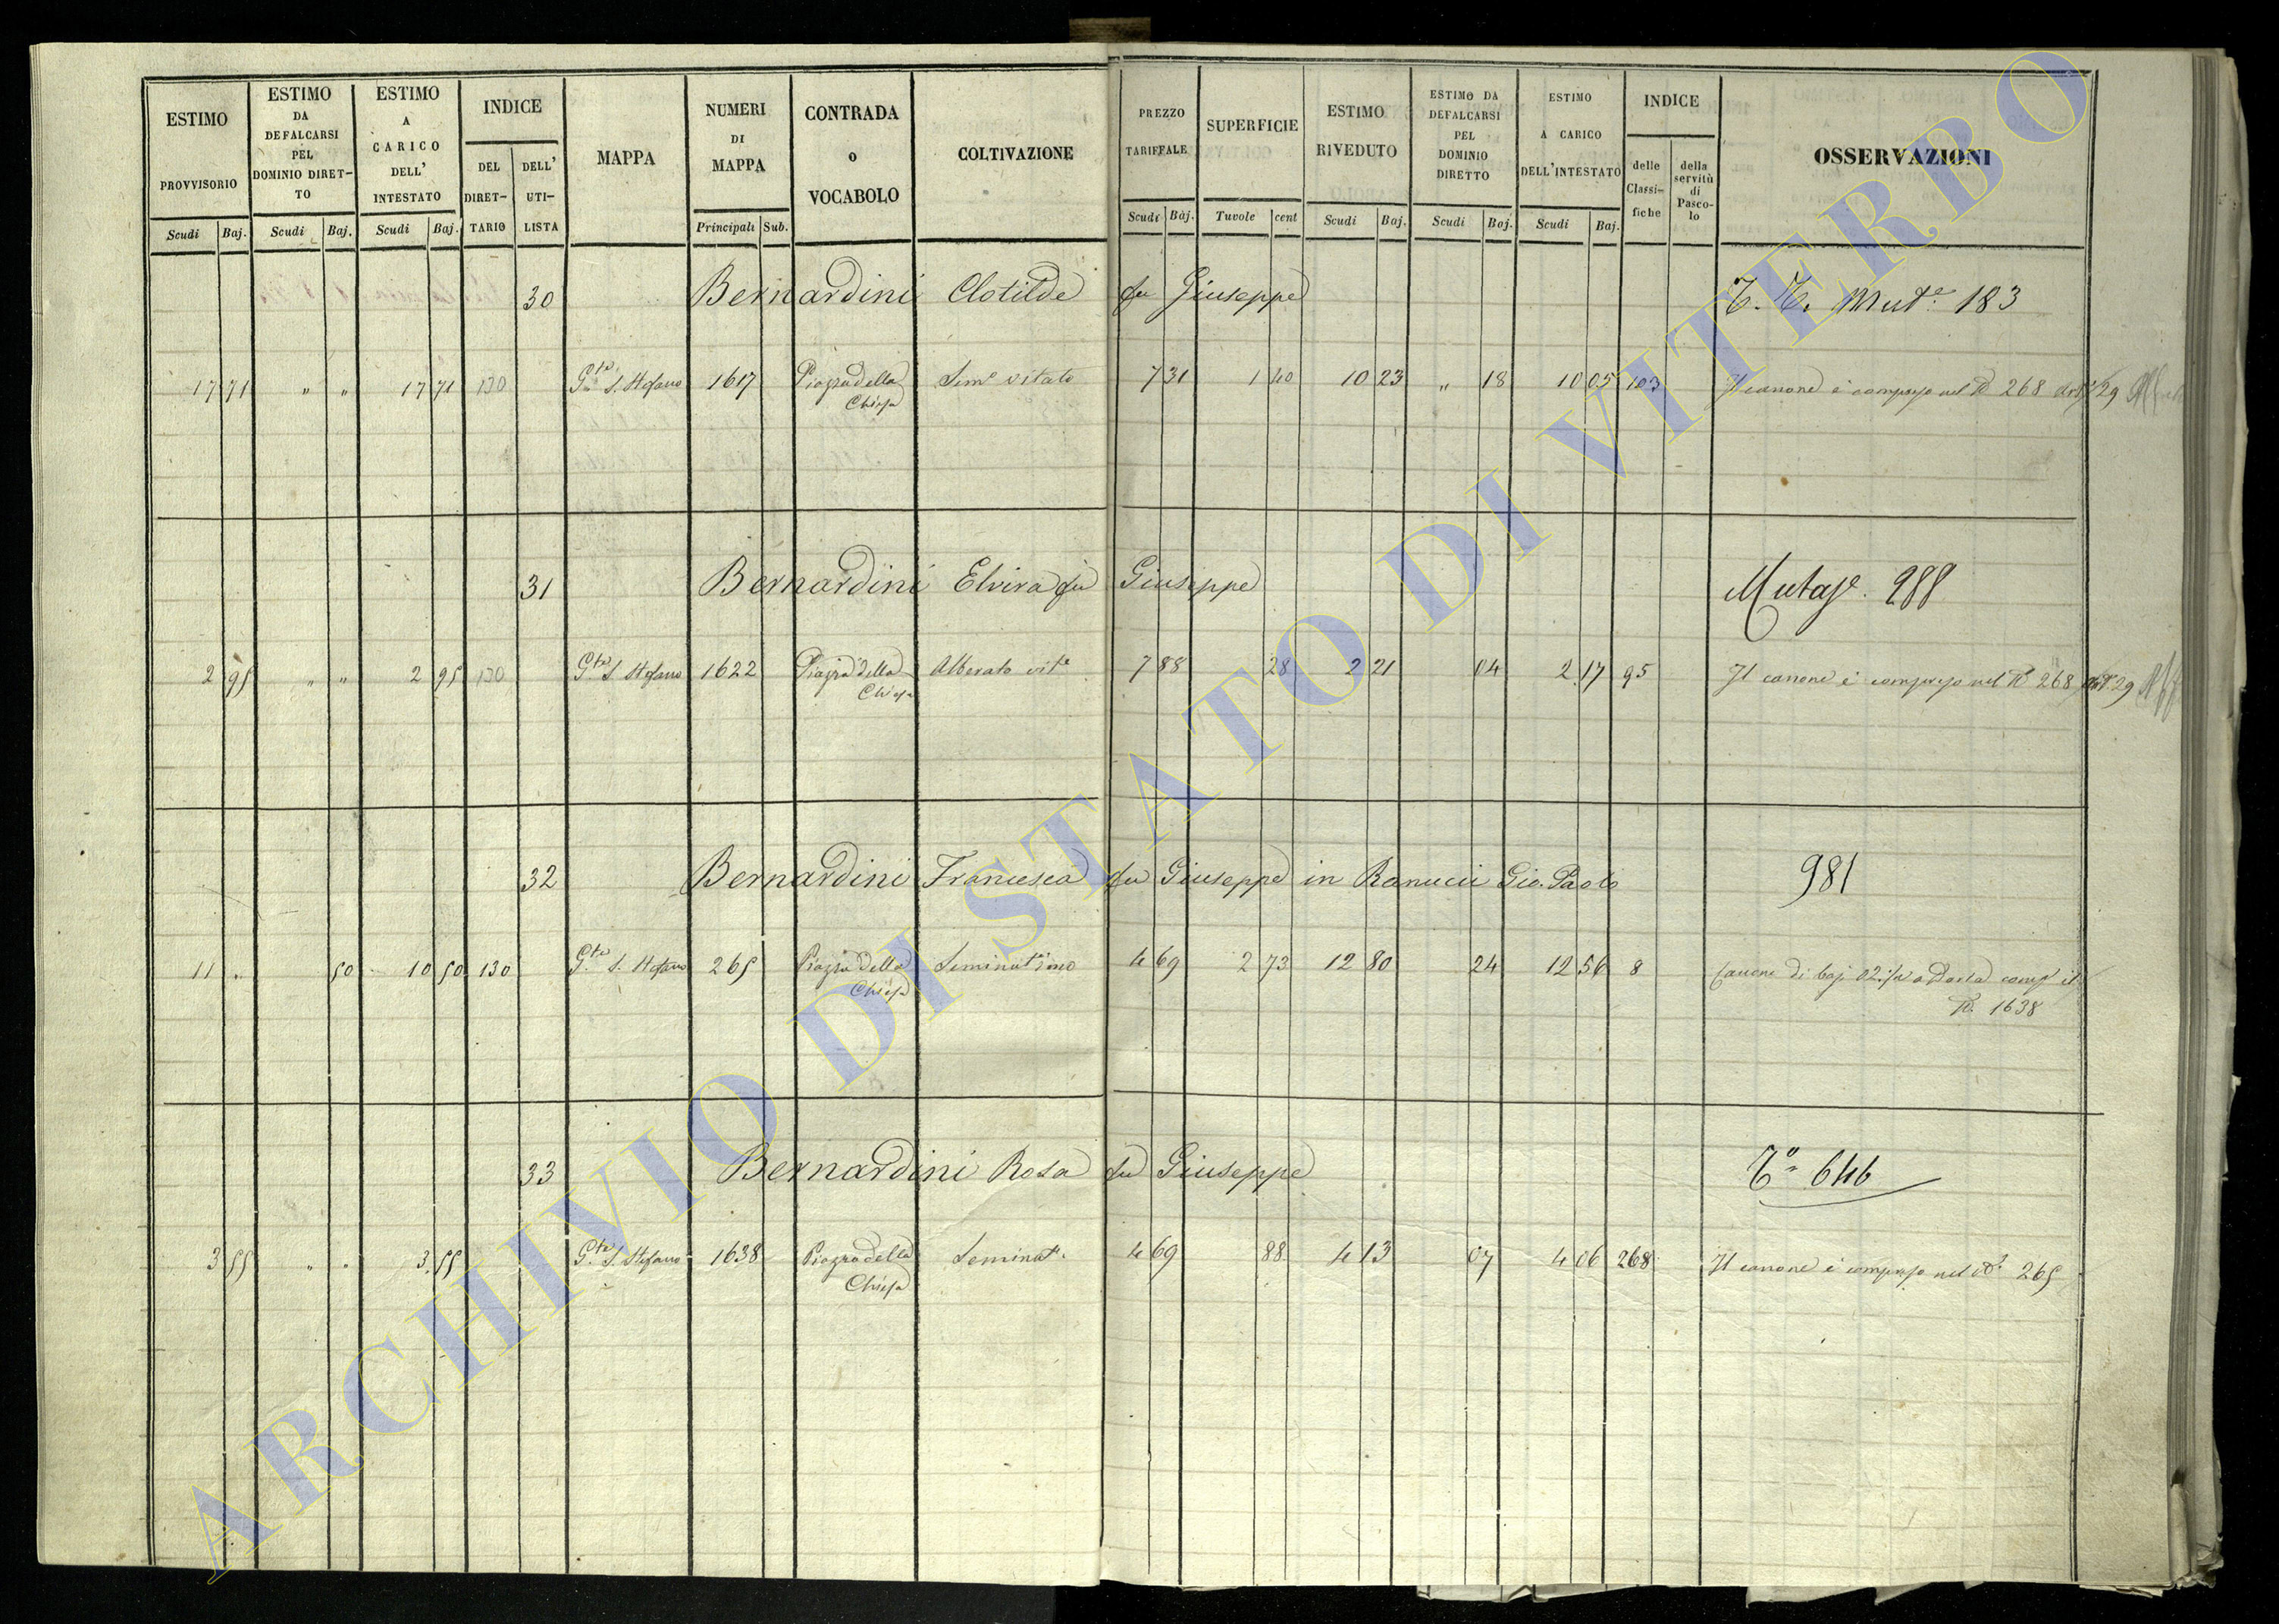 ESTIMO PROVVISORIO
ESTIMO DA DEFALCARSI PEL DOMINIO DIRET-TO
ESTIMO A CARICO DELL' INTESTATO
INDICE
DEL DIRET-TARIO
DELL' UTI-LISTA
MAPPA
NUMERI DI MAPPA
CONTRADA O VOCABOLO
COLTIVAZIONE
PREZZO TARIFFALE
SUPERFICIE
ESTIMO RIVEDUTO
ESTIMO DA DEFALCARSI PEL DOMINIO DIRETTO
ESTIMO A CARICO DELL'INTESTATO
INDICE
delle Classi-fiche
della servitù di Pasco-lo
OSSERVAZIONI
Scudi Baj. Scudi Baj. Scudi Baj. Principali Sub. Scudi Baj. Tavole cent Scudi Baj. Scudi Baj. Scudi Baj.
30 Bernardini Clotilde fu Giuseppe Mut.e 183
17 71 " " 17 71 130 G.te S. Stefano 1617 Piazza della Chiesa Sem.o vitato 7 31 1 40 10 23 " 18 10 05 103 Il canone è compreso nel N 268 art. 29
31 Bernardini Elvira fu Giuseppe 988
2 95 " " 2 95 130 G.te S. Stefano 1622 Piazza della Chiesa Alberato vit.o 7 88 28 2 21 04 2 17 95 Il canone è compreso nel N 268 art. 29
32 Bernardini Francesca fu Giuseppe in Ranucci Gio. Paolo 981
11 " 50 10 50 130 G.te S. Stefano 265 Piazza della Chiesa Seminativo 4 69 2 73 12 80 24 12 56 8 Canone di baj. comp. il
N. 1638
33 Bernardini Rosa fu Giuseppe 646
3 55 " " 3 55 G.te S. Stefano 1638 Piazza della Chiesa Seminat. 4 69 88 4 13 07 4 06 268 Il canone è compreso nel N. 265
ARCHIVIO DI STATO DI VITERBO